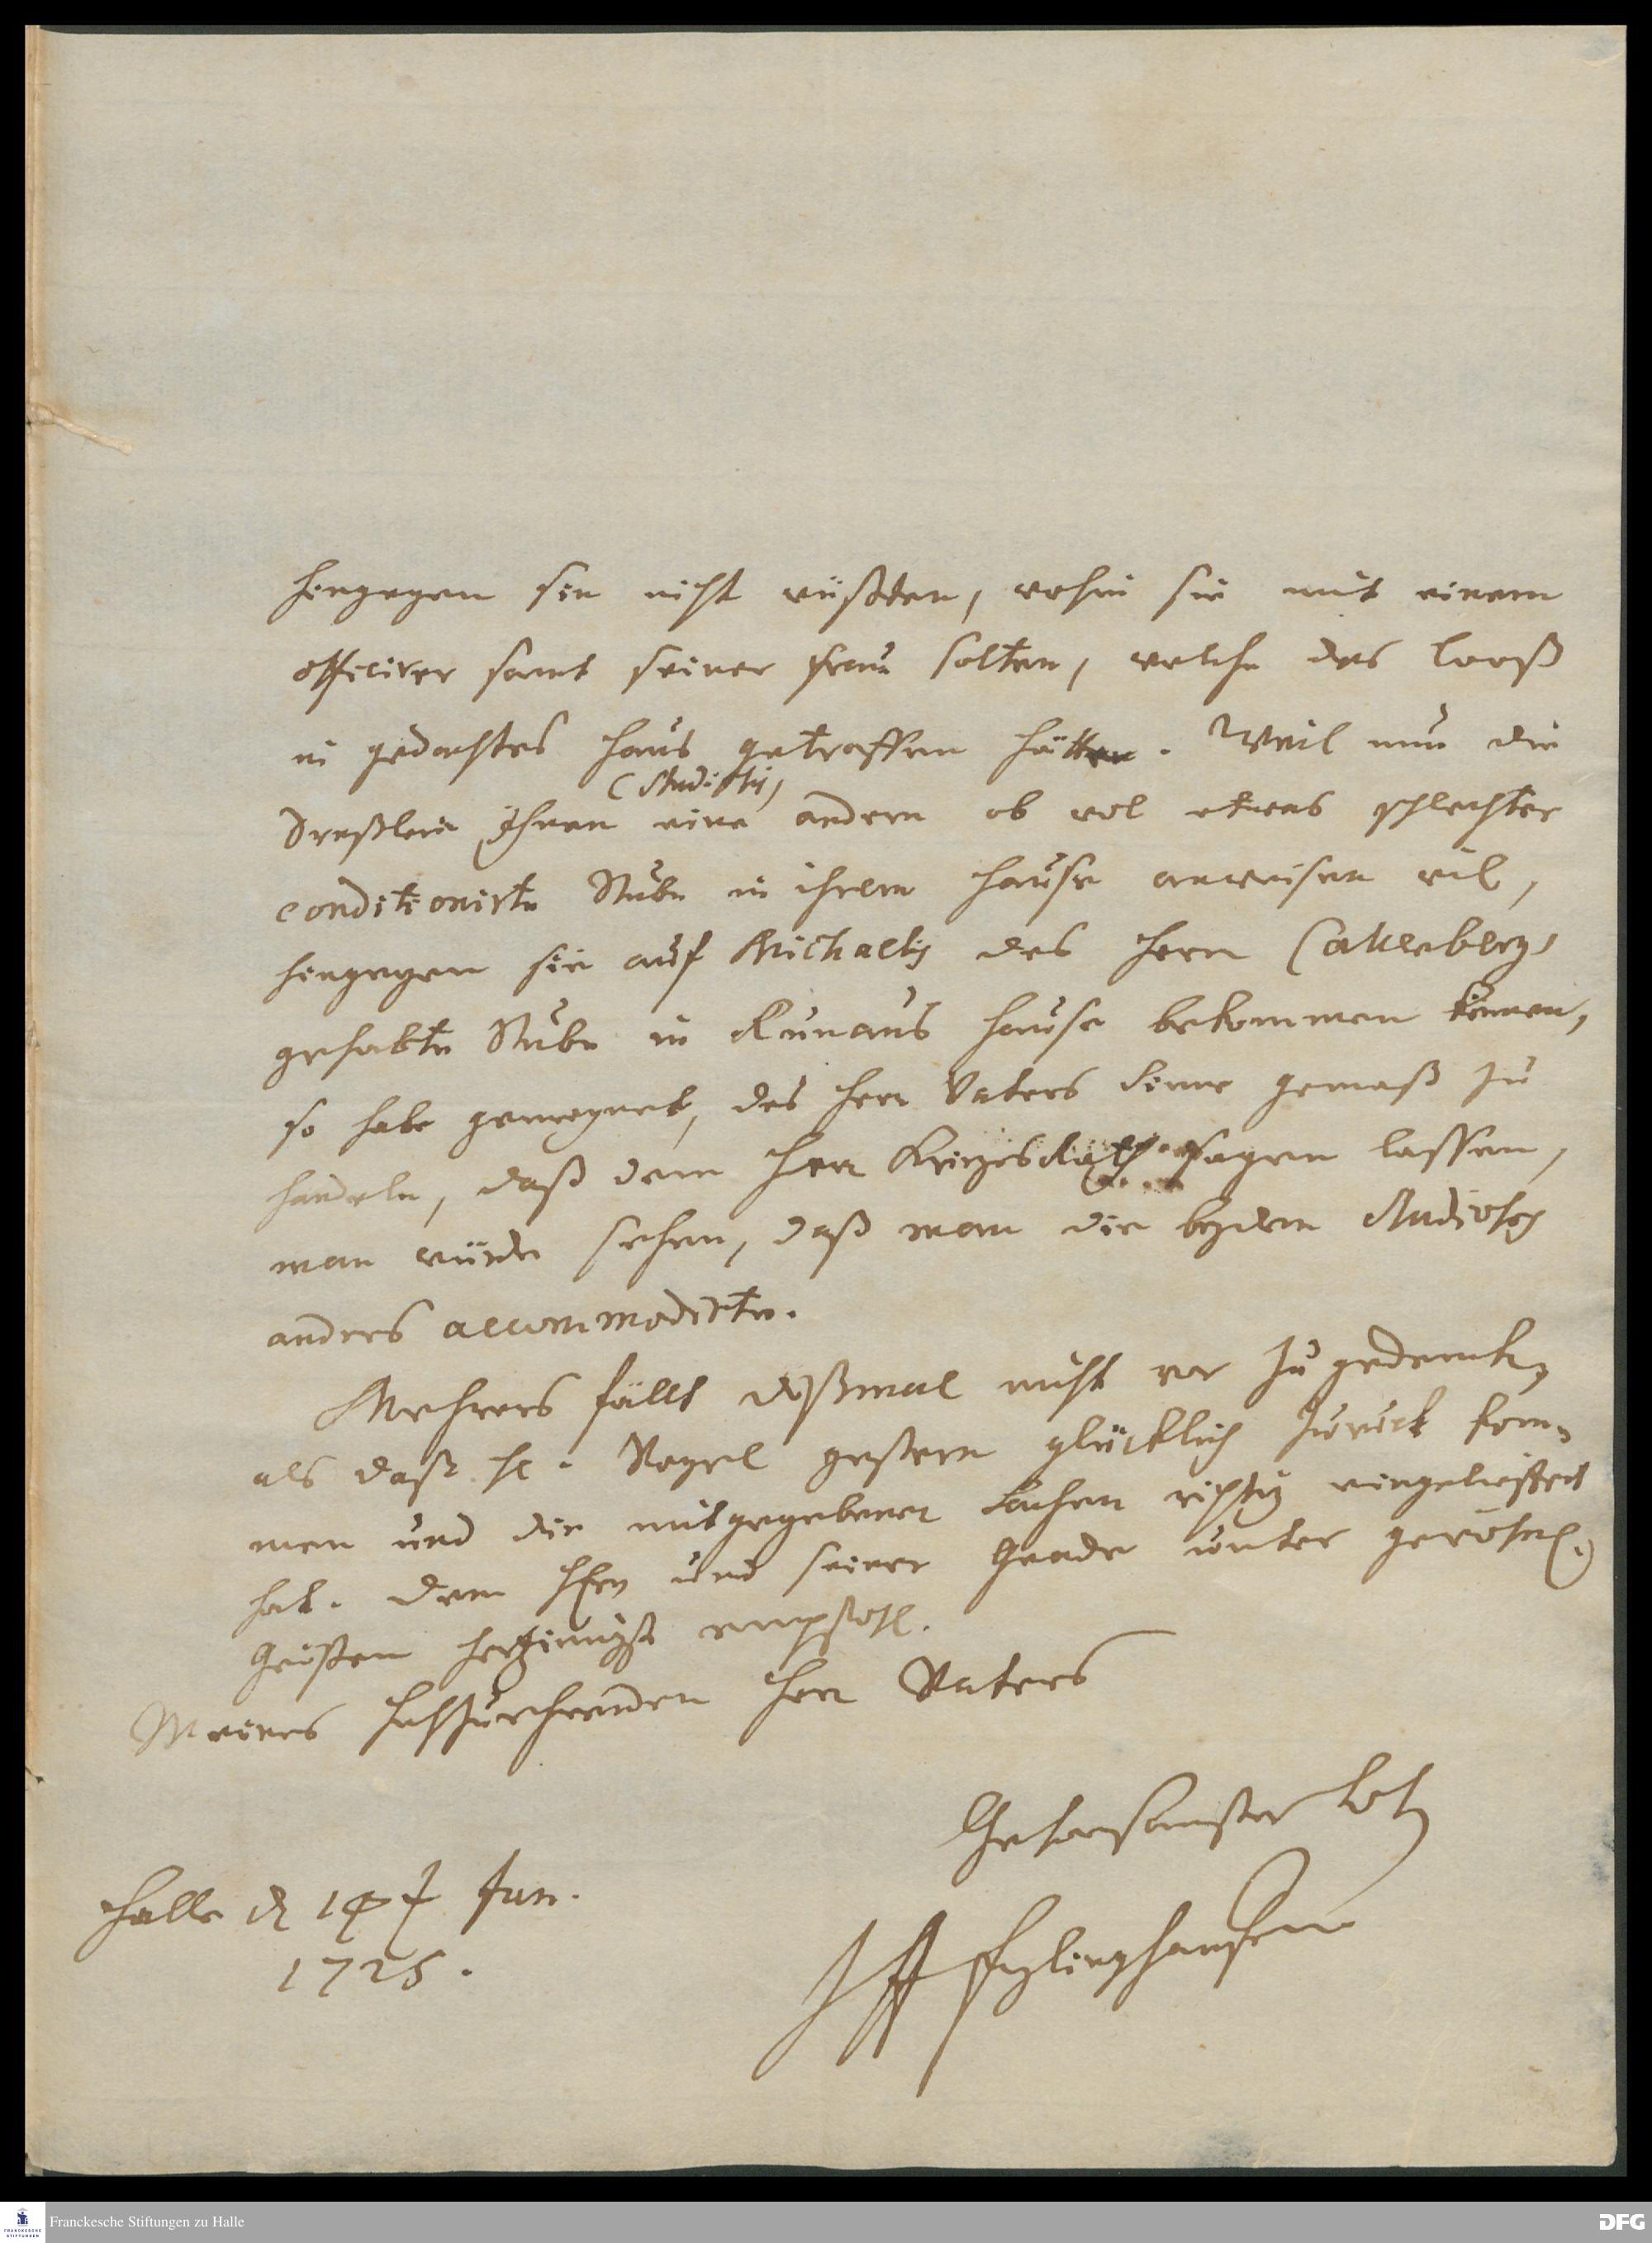 hingegen sie nicht wüsten, wohin sie mit einem
officirer samt seiner Frau solten, welche das Looß
in gedachtes Haus getroffen hätten. Weil nun die
(Studiosis)
Ihnen eine andern ob wol etwas schlechter
conditionirte Stube in ihrem Hause anweisen wil,
hingegen sie auf Michaelis des Herrn Callenbergs
gehabte Stube in Runaus Hause bekommen können,
so habe gemeynet, des Herr Vaters Sinne gemäß zu
handeln, daß dem Herr Kriegesrath sagen lassen,
man würde sehen, daß man die beyden Studiosos
anders accommodirte.
Mehrers fällt dißmal nicht vor zu gedencken,
als daß H. Vogel gestern glücklich zurück kom-
men und die mitgegebenen Sachen richtig eingeliefert
hat. Dem HErrn und seiner Gnade unter
Grüßen hertzinnigst empfohl.
Meines Hochzuehrenden Herr Vaters
Gehorsamster Sohn
Halle d. 14 Jun.
1725.
JA Freylinghausen
Franckesche Stiftungen zu Halle
FRANCKESCHE
STIFTUNGEN
DFG